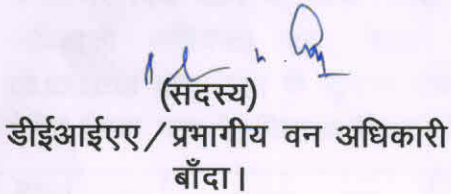 (सदस्य)
डीईआईएए/प्रभागीय वन अधिकारी
बाँदा।